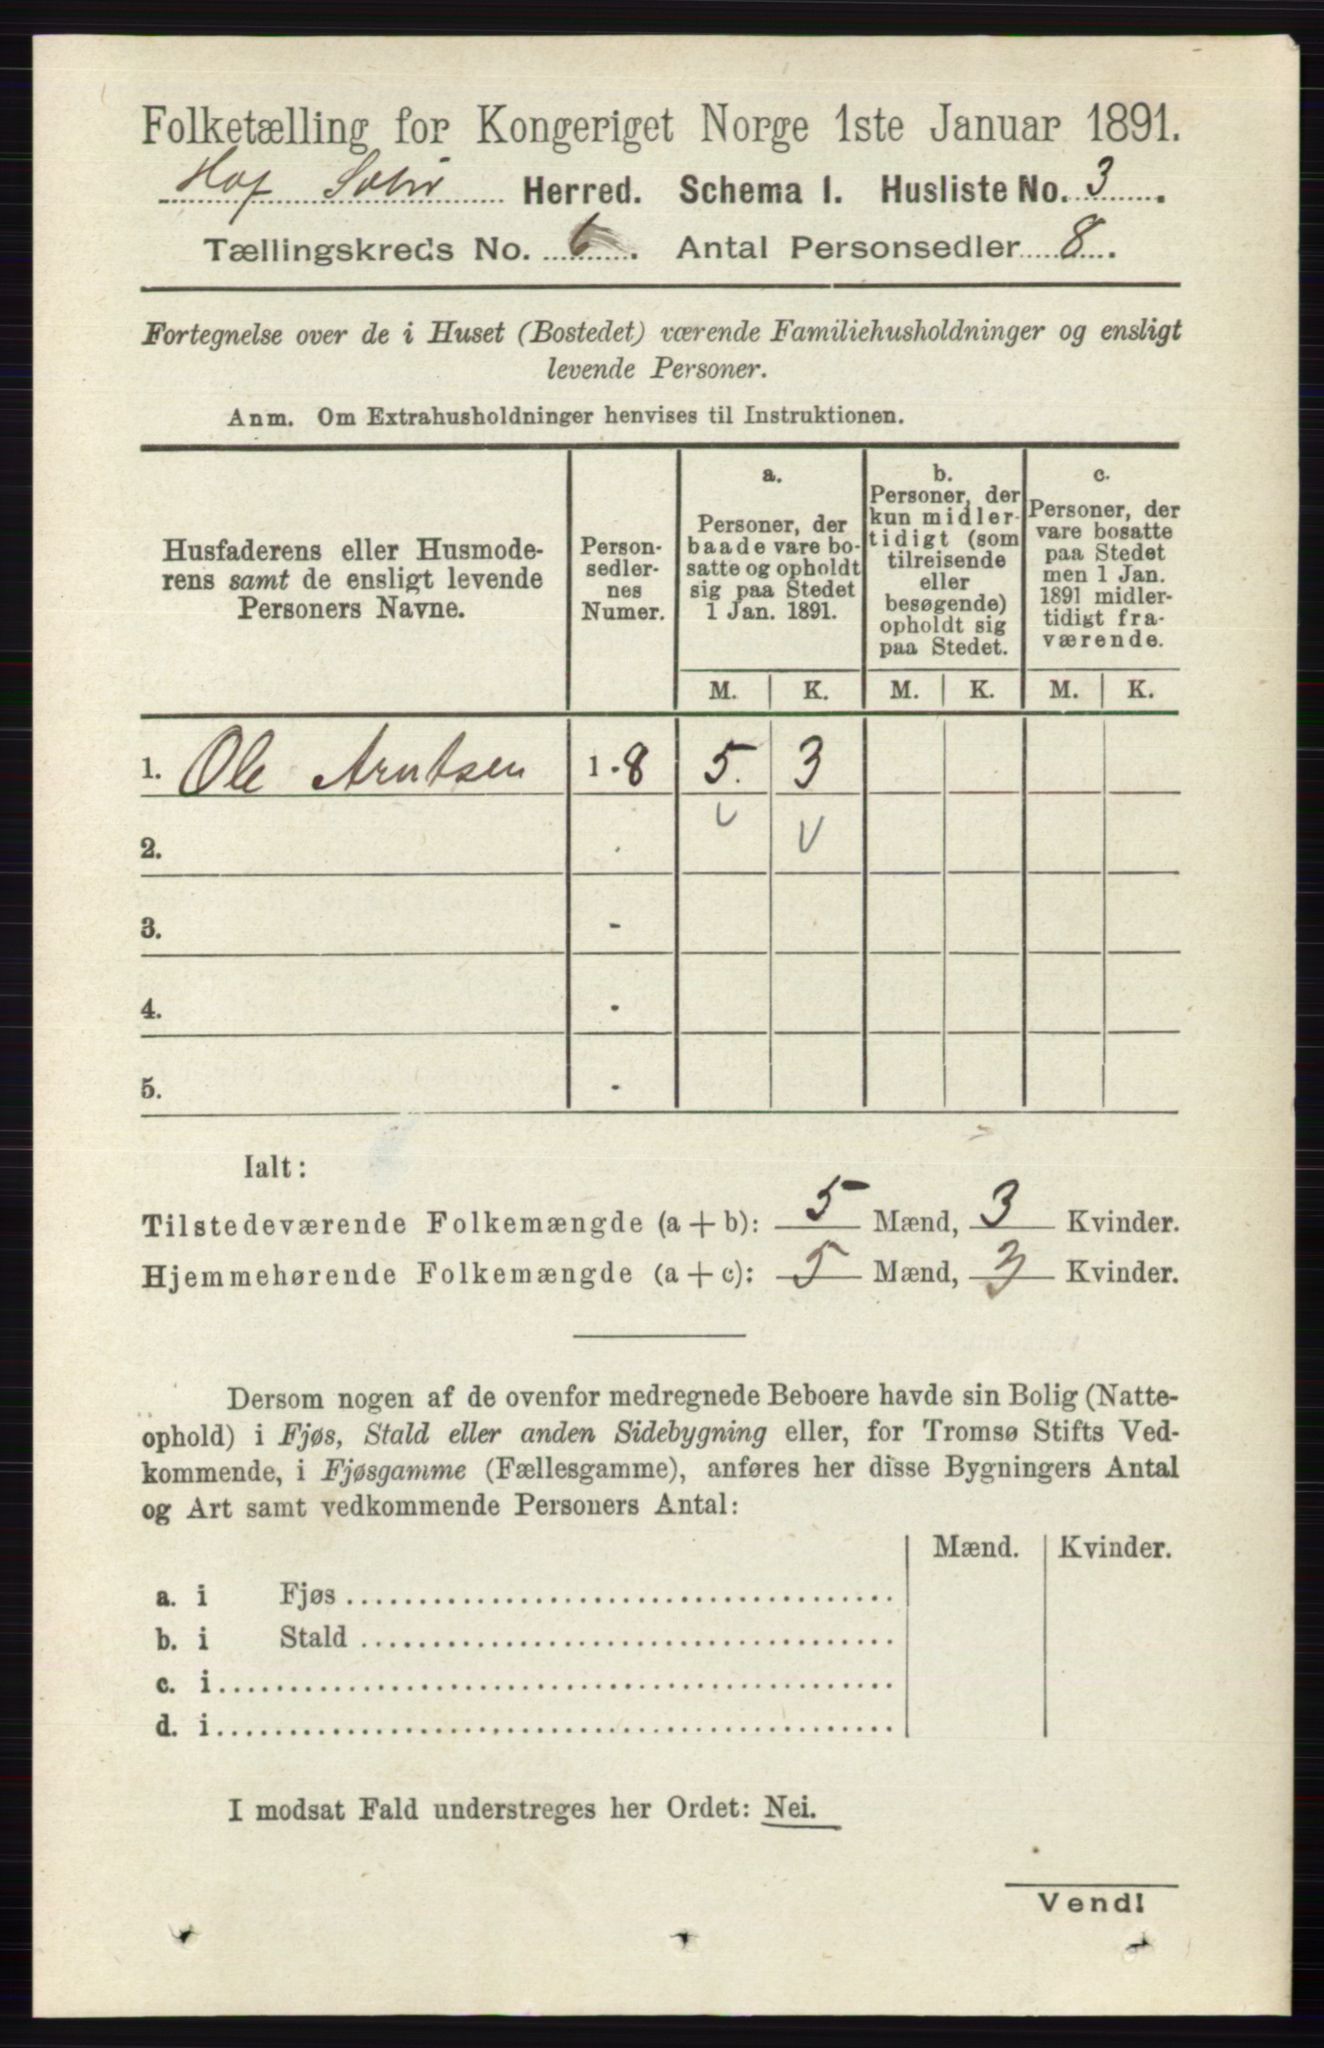 Folketælling for Kongeriget Norge 1ste Januar 1891.
Hof Solør Herred. Schema 1. Husliste No. 3.
Tællingskreds No. 6. Antal Personsedler 8.
Fortegnelse over de i Huset (Bostedet) værende Familiehusholdninger og ensligt
levende Personer.
Anm. Om Extrahusholdninger henvises til Instruktionen.
Husfaderens eller Husmode-
rens samt de ensligt levende
Personers Navne.
Person-
sedler-
nes
Numer.
a.
Personer, der
baade vare bo-
satte og opholdt
sig paa Stedet
1 Jan. 1891.
b.
Personer, der
kun midler-
tidigt (som
tilreisende
eller
besøgende)
opholdt sig
paa Stedet.
c.
Personer, der
vare bosatte
paa Stedet
men 1 Jan.
1891 midler-
tidigt fra-
værende.
M. K. M. K. M. K.
1. Ole Arntsen 1-8 5. 3
2.
3. -
4. -
5. -
Ialt:
Tilstedeværende Folkemængde (a + b): 5 Mænd, 3 Kvinder.
Hjemmehørende Folkemængde (a + c): 5 Mænd, 3 Kvinder.
Dersom nogen af de ovenfor medregnede Beboere havde sin Bolig (Natte-
ophold) i Fjøs, Stald eller anden Sidebygning eller, for Tromsø Stifts Ved-
kommende, i Fjøsgamme (Fællesgamme), anføres her disse Bygningers Antal
og Art samt vedkommende Personers Antal:
Mænd. Kvinder.
a. i Fjøs
b. i Stald
c. i
d. i
I modsat Fald understreges her Ordet: Nei.
Vend!